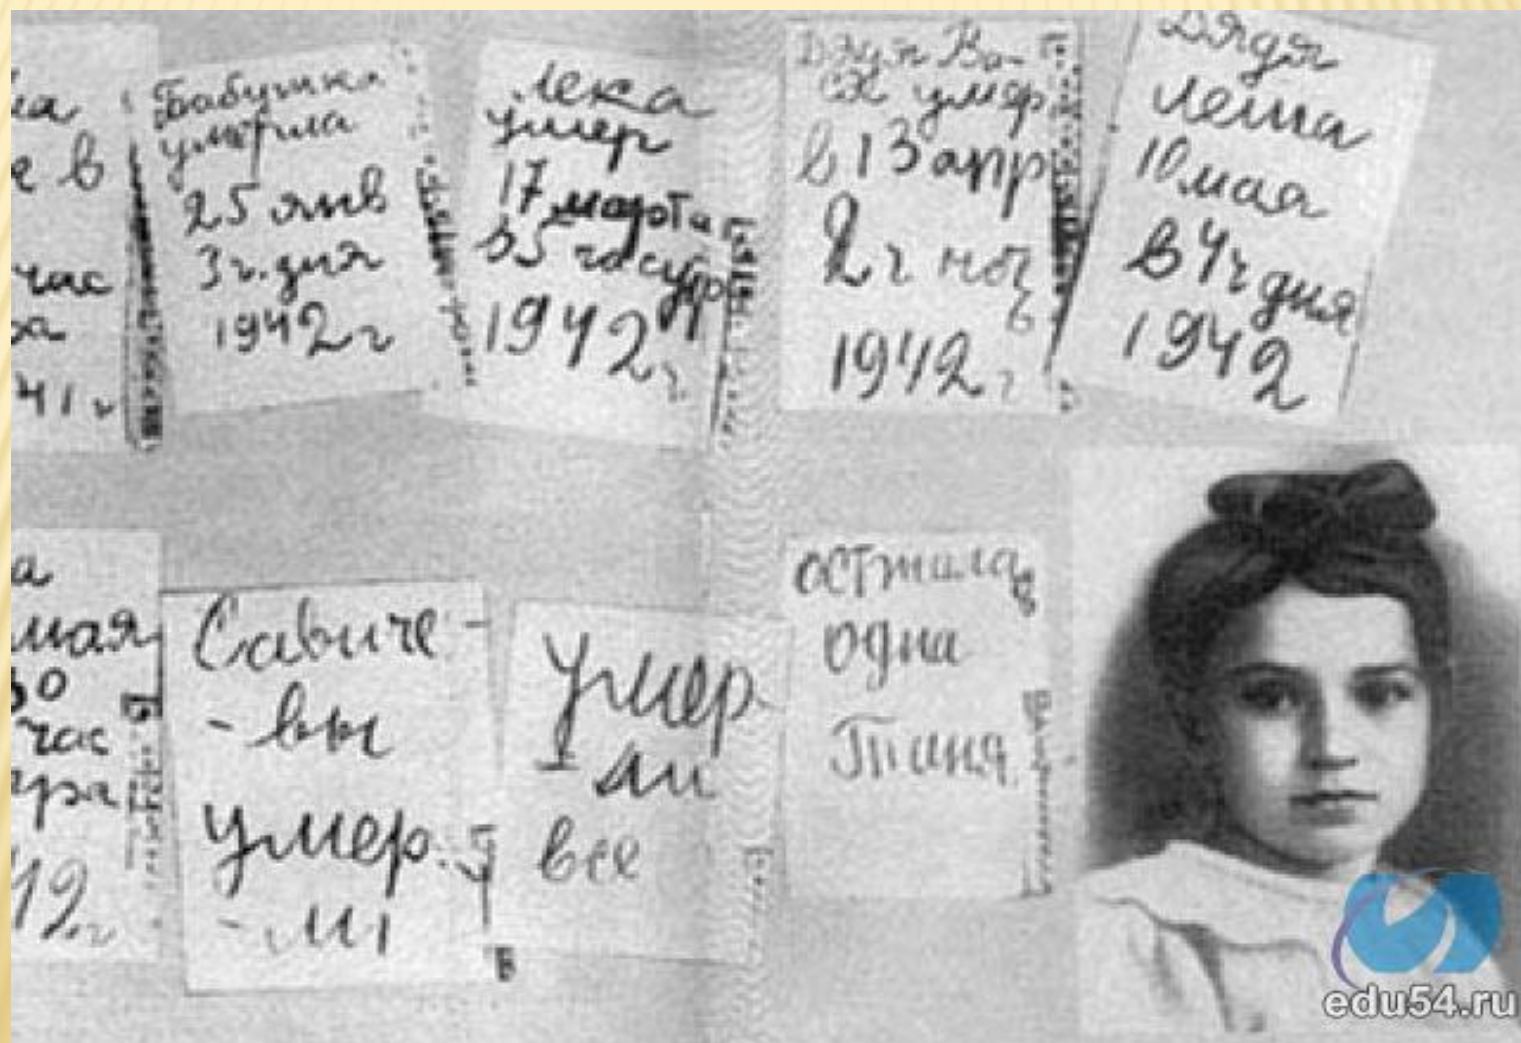 на
е в
час
ра
41 г
Бабушка
умерла
25 янв
3 ч. дня
1942 г
Лека
умер
17 марта
в 5 час утр
1942 г
Дядя Ва-
ся умер
в 13 апр
2 ч ноч
ь
1942 г
Дядя
Леша
10 мая
в 4 ч дня
1942
а
мая
30
час
тра
42 г
Савиче-
-вы
умер.
-ли
Умер
-ли
все
Осталась
одна
Таня
edu54.ru